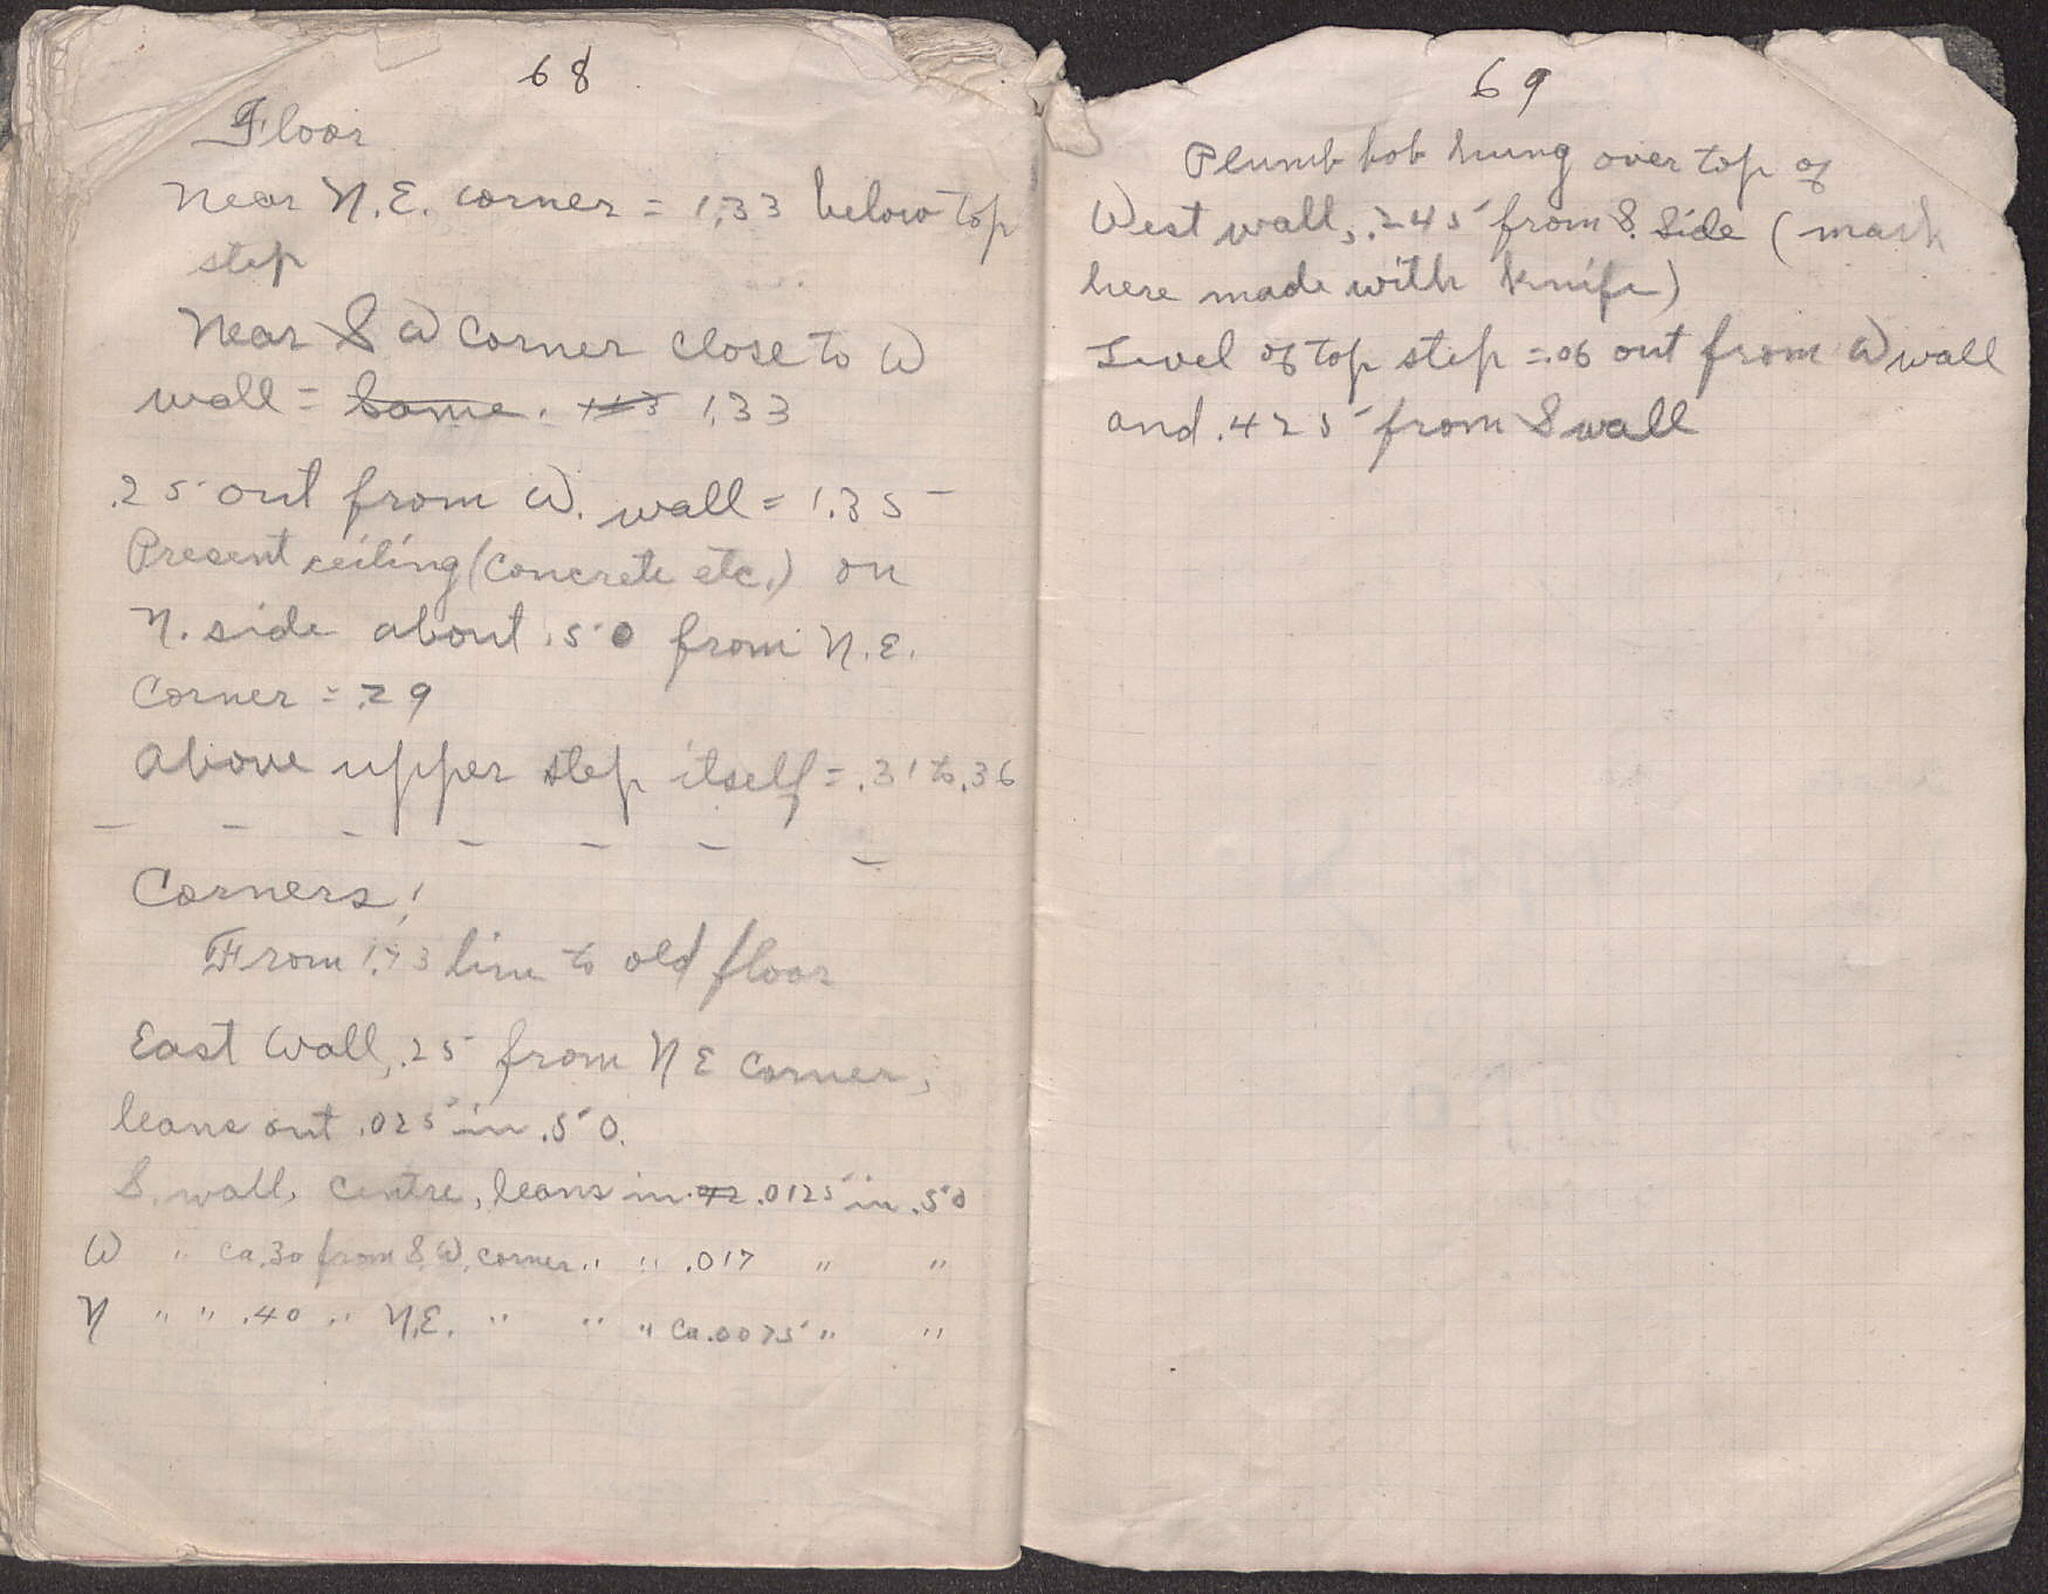 68
Floor
Near N.E. corner = 1.33 below top
step
Near S W Corner close to W
wall = Same. 1.33
.25 out from W. wall = 1.35
Present ceiling (Concrete etc.) on
N. side about .50 from N.E.
Corner = .29
Above upper step itself = .31 to .36
— — — — — — —
Corners!
From line to old floor
East Wall, .25 from N E Corner,
leans out .025 in .50.
S. wall, centre, leans in .0125 in .50
W " ca .30 from S.W. corner " " .017 " "
N " " .40 " N.E. " " " ca .0075 " "
69
Plumb bob hung over top of
West wall, .245 from S. Side (mark
here made with knife)
Level of top step = .06 out from W wall
and .425 from S wall